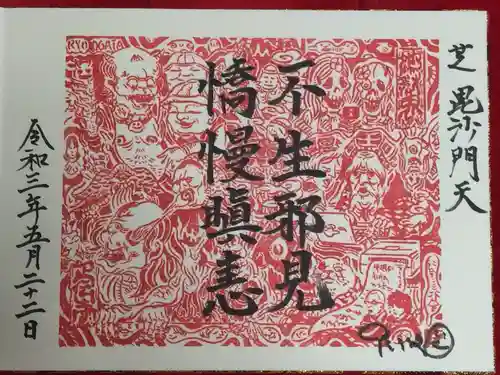 芝 毘沙門天
不生邪見
憍慢瞋恚
令和三年五月二十二日
RYUUGATA